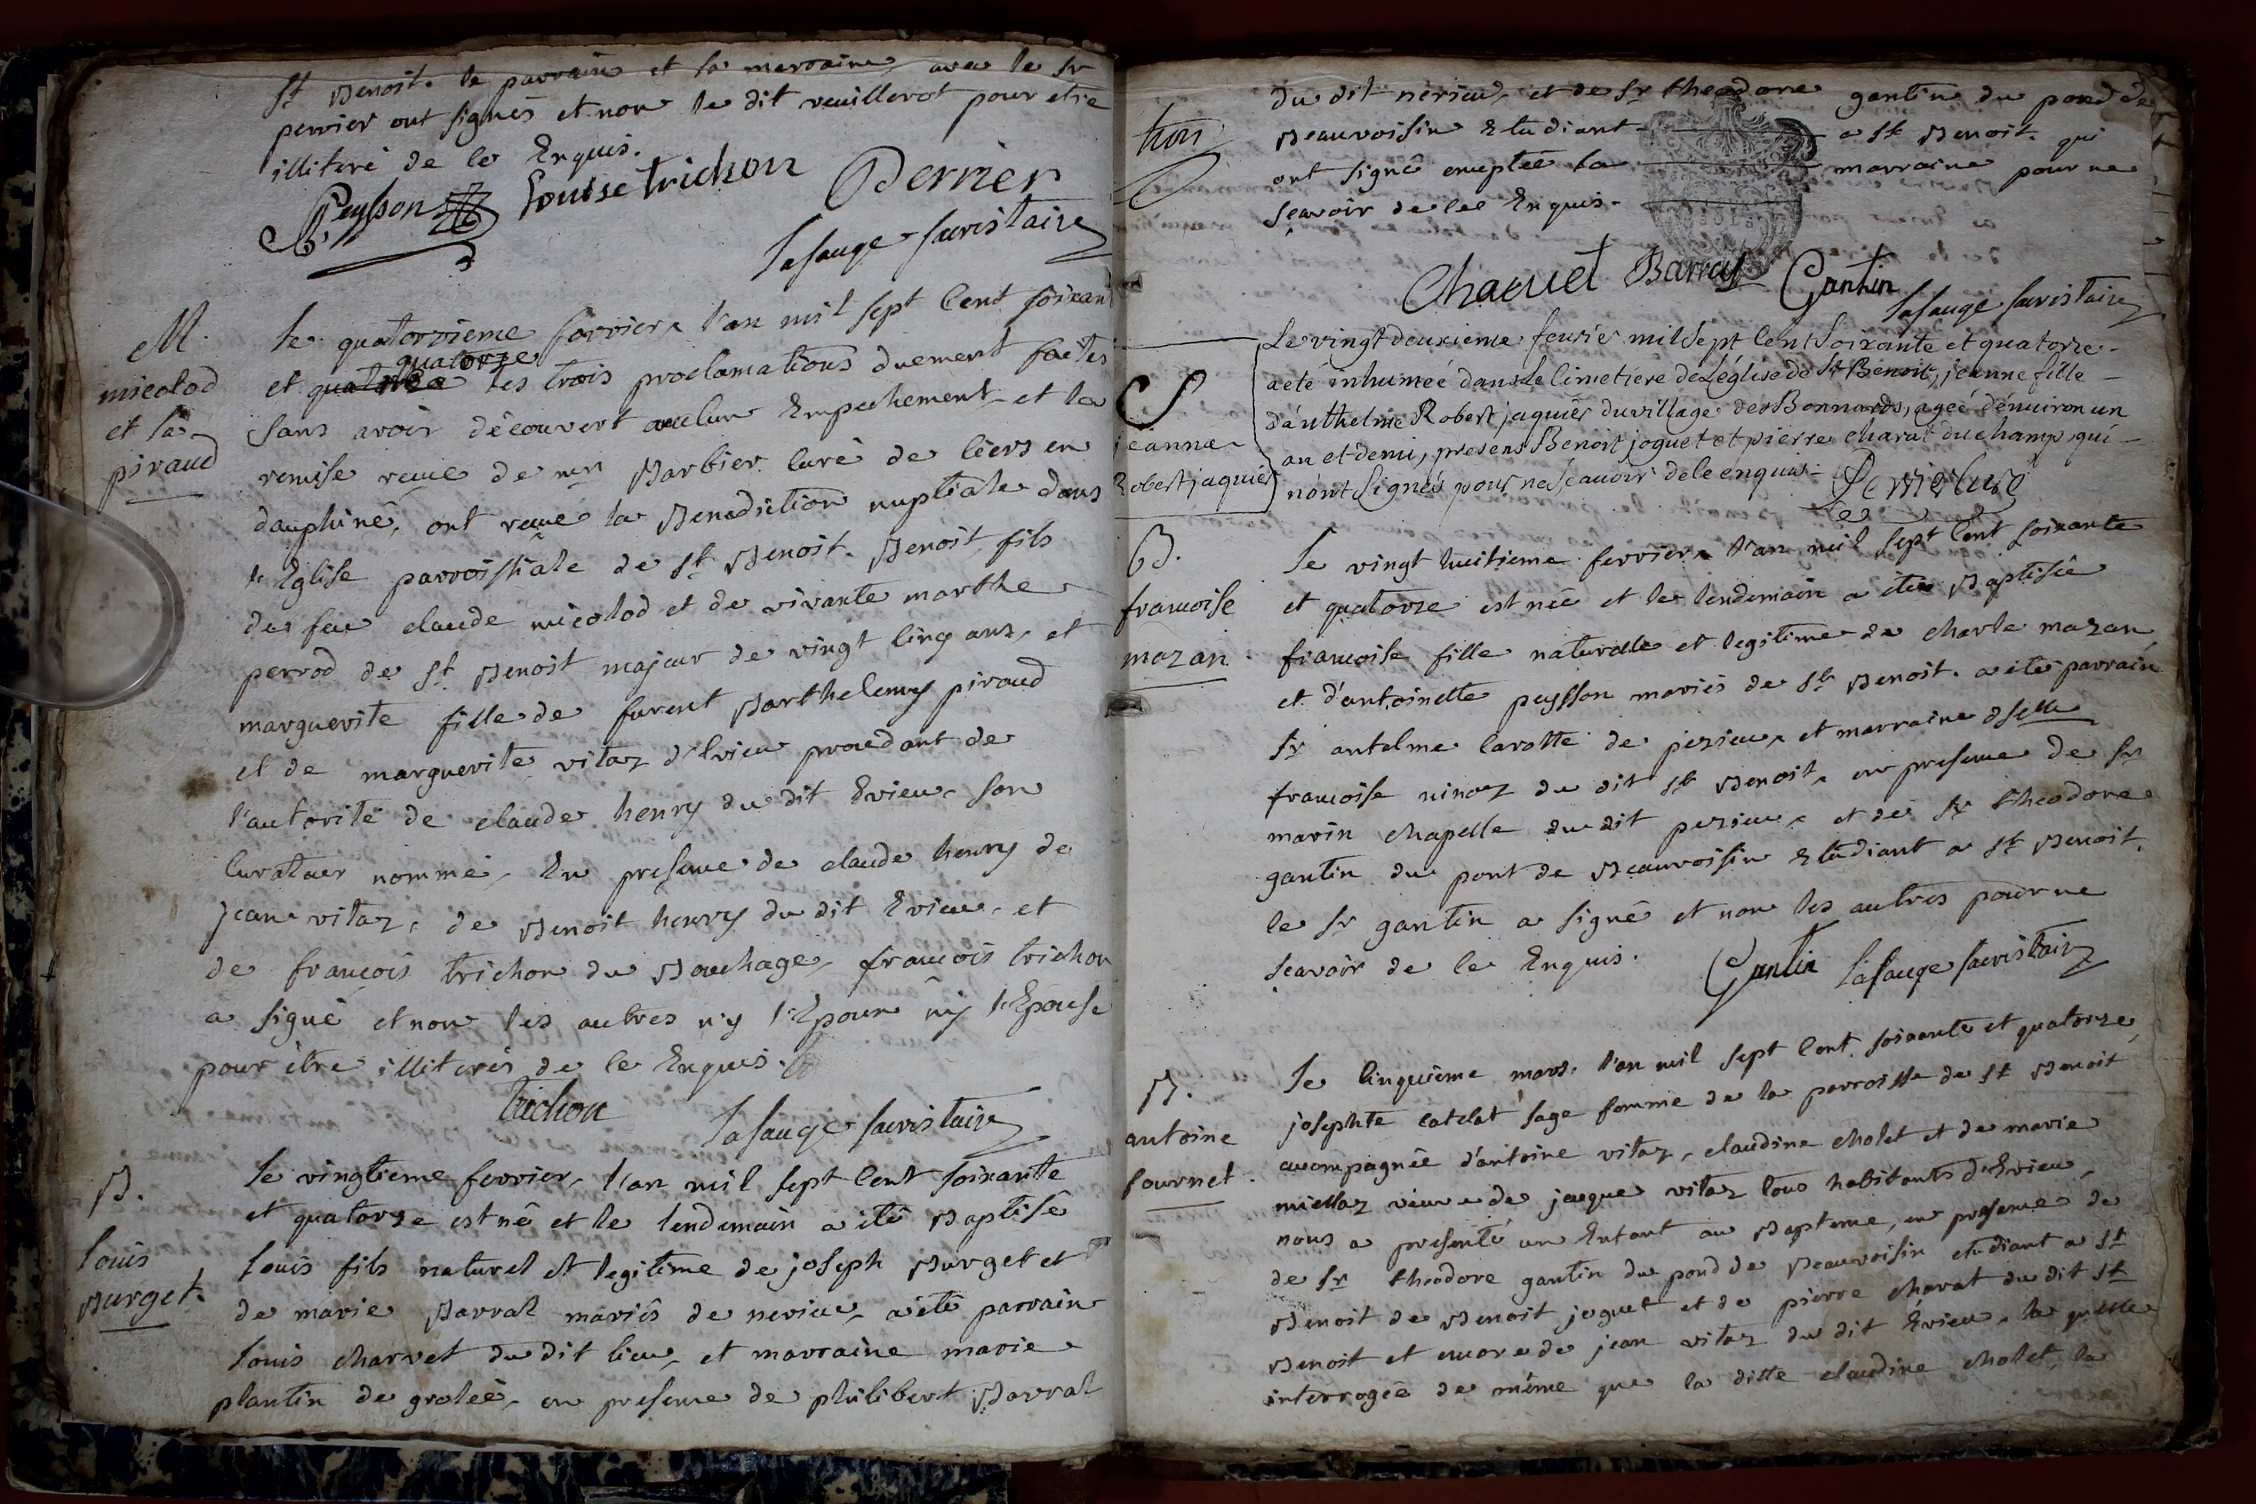 St Benoit. le parrain et la marraine avec le Sr
perrier ont signés et non le dit veuillerot pour etre
illiteré de ce Enquis.
Peysson Louise trichon Perrier
Lasauge sacristaire
M.
micolod
et la
piraud
le quatorzieme fevrier, l'an mil sept cent soixante
quatorze
et les trois proclamations duement faites
sans avoir découvert aucun Empechement et la
remise reçue de mr Barbier curé de Ciers en
dauphiné, ont reçue la Benediction nuptiale dans
l'Eglise parroissiale de St Benoit. Benoit fils
de feu claude micolod et de vivante marthe
perrod de St Benoit majeur de vingt cinq ans, et
marguerite fille de furent Barthelemy piraud
et de marguerite vitoz d'Evieu procedant de
l'autorité de claude henry du dit Evieu, son
curateur nommé, En presence de claude henry de
jean vitoz, de Benoit henry du dit Evieu, et
de francois trichon du Bouchage, francois trichon
a signé et non les autres n'y l'Epoux n'y l'Epouse
pour être illiterés de ce Enquis.
trichon
Lasauge sacristaire
B.
Louis
Burget.
le vingtieme fevrier, l'an mil sept cent soixante
et quatorze est né et le lendemain a ité Baptisé
Louis fils naturel et legitime de joseph Burget et
de marie Barral mariés de nerieu, a été parrain
Louis charvet du dit lieu, et marraine marie
plantin de grolée, en presence de philibert Barral
tion
du dit nerieu, et de Sr theodore gantin du pond de
Beauvoisin Etudiant a St Benoit. qui
ont signé exceptée la marraine pour ne
sçavoir de ce Enquis.
Charvet Barral Gantin
Lasauge sacristaire
S
jeanne
Robert jaquier
Le vingt deuxieme fevrier mil Sept Cent Soixante et quatorze
a eté inhumeé dans le Cimetiere de L'église de St Benoit, jeanne fille
d'anthelme Robert jaquier du village des Bonnards, ageé d'environ un
an et demi, presens Benoit joguet et pierre charat du champ qui
n'ont signés pour ne Sçavoir de ce enquis.
Perrier Curé
B.
francoise
mazan
le vingt huitieme fevrier, l'an mil sept cent soixante
et quatorze est née et le lendemain a étée Baptisée
francoise fille naturelle et legitime de charle mazan
et d'antoinette peysson mariés de St Benoit. a été parrain
Sr antelme carotte de perieu, et marraine dselle
francoise ninoz du dit St Benoit, en presence de Sr
marin chapelle du dit perieu, et de Sr theodore
gantin du pont de Beauvoisin Etudiant a St Benoit.
le Sr gantin a signé et non les autres pour ne
sçavoir de ce Enquis.
Gantin Lasauge sacristaire
B.
antoine
fournet.
le cinquieme mars, l'an mil sept cent soixante et quatorze
josephte catelat sage femme de la parroisse de St Benoit
accompagnée d'antoine vitoz, claudine cholet et de marie
miellaz veuve de jacque vitoz tous habitants d'Evieu,
nous a presenté un Enfant au Bapteme, en presence de
de Sr theodore gantin du pond de Beauvoisin etudiant a St
Benoit de Benoit joguet et de pierre charat du dit St
Benoit et encore de jean vitoz du dit Evieu, la quelle
interrogée de même que la ditte claudine cholet, la